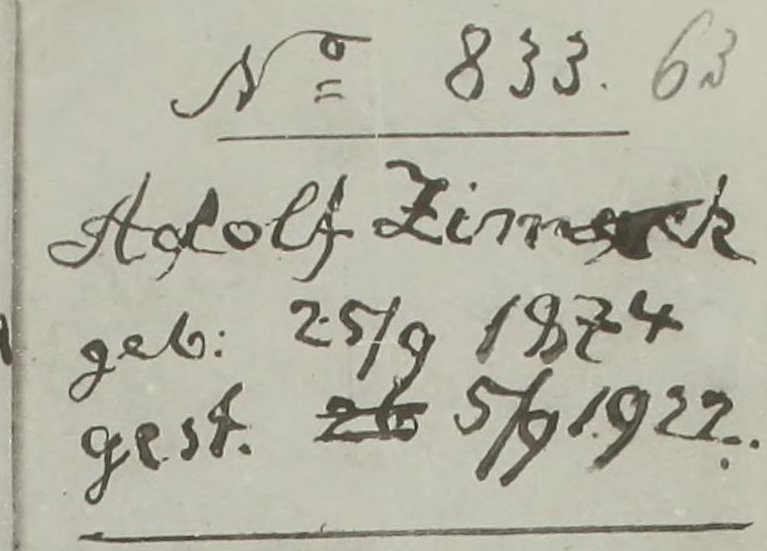 Nº 833. 63
Adolf
geb: 25/9 1874
gest. 26 5/9 1922.